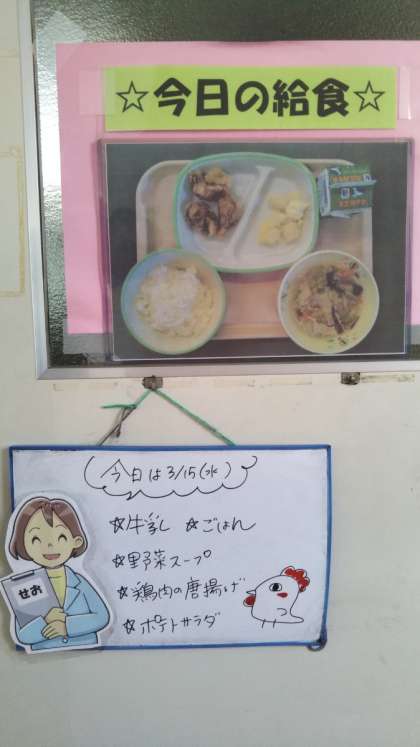 ☆今日の給食☆
今日は3/15(水)
☆牛乳 ☆ごはん
☆野菜スープ
☆鶏肉の唐揚げ
☆ポテトサラダ
せお